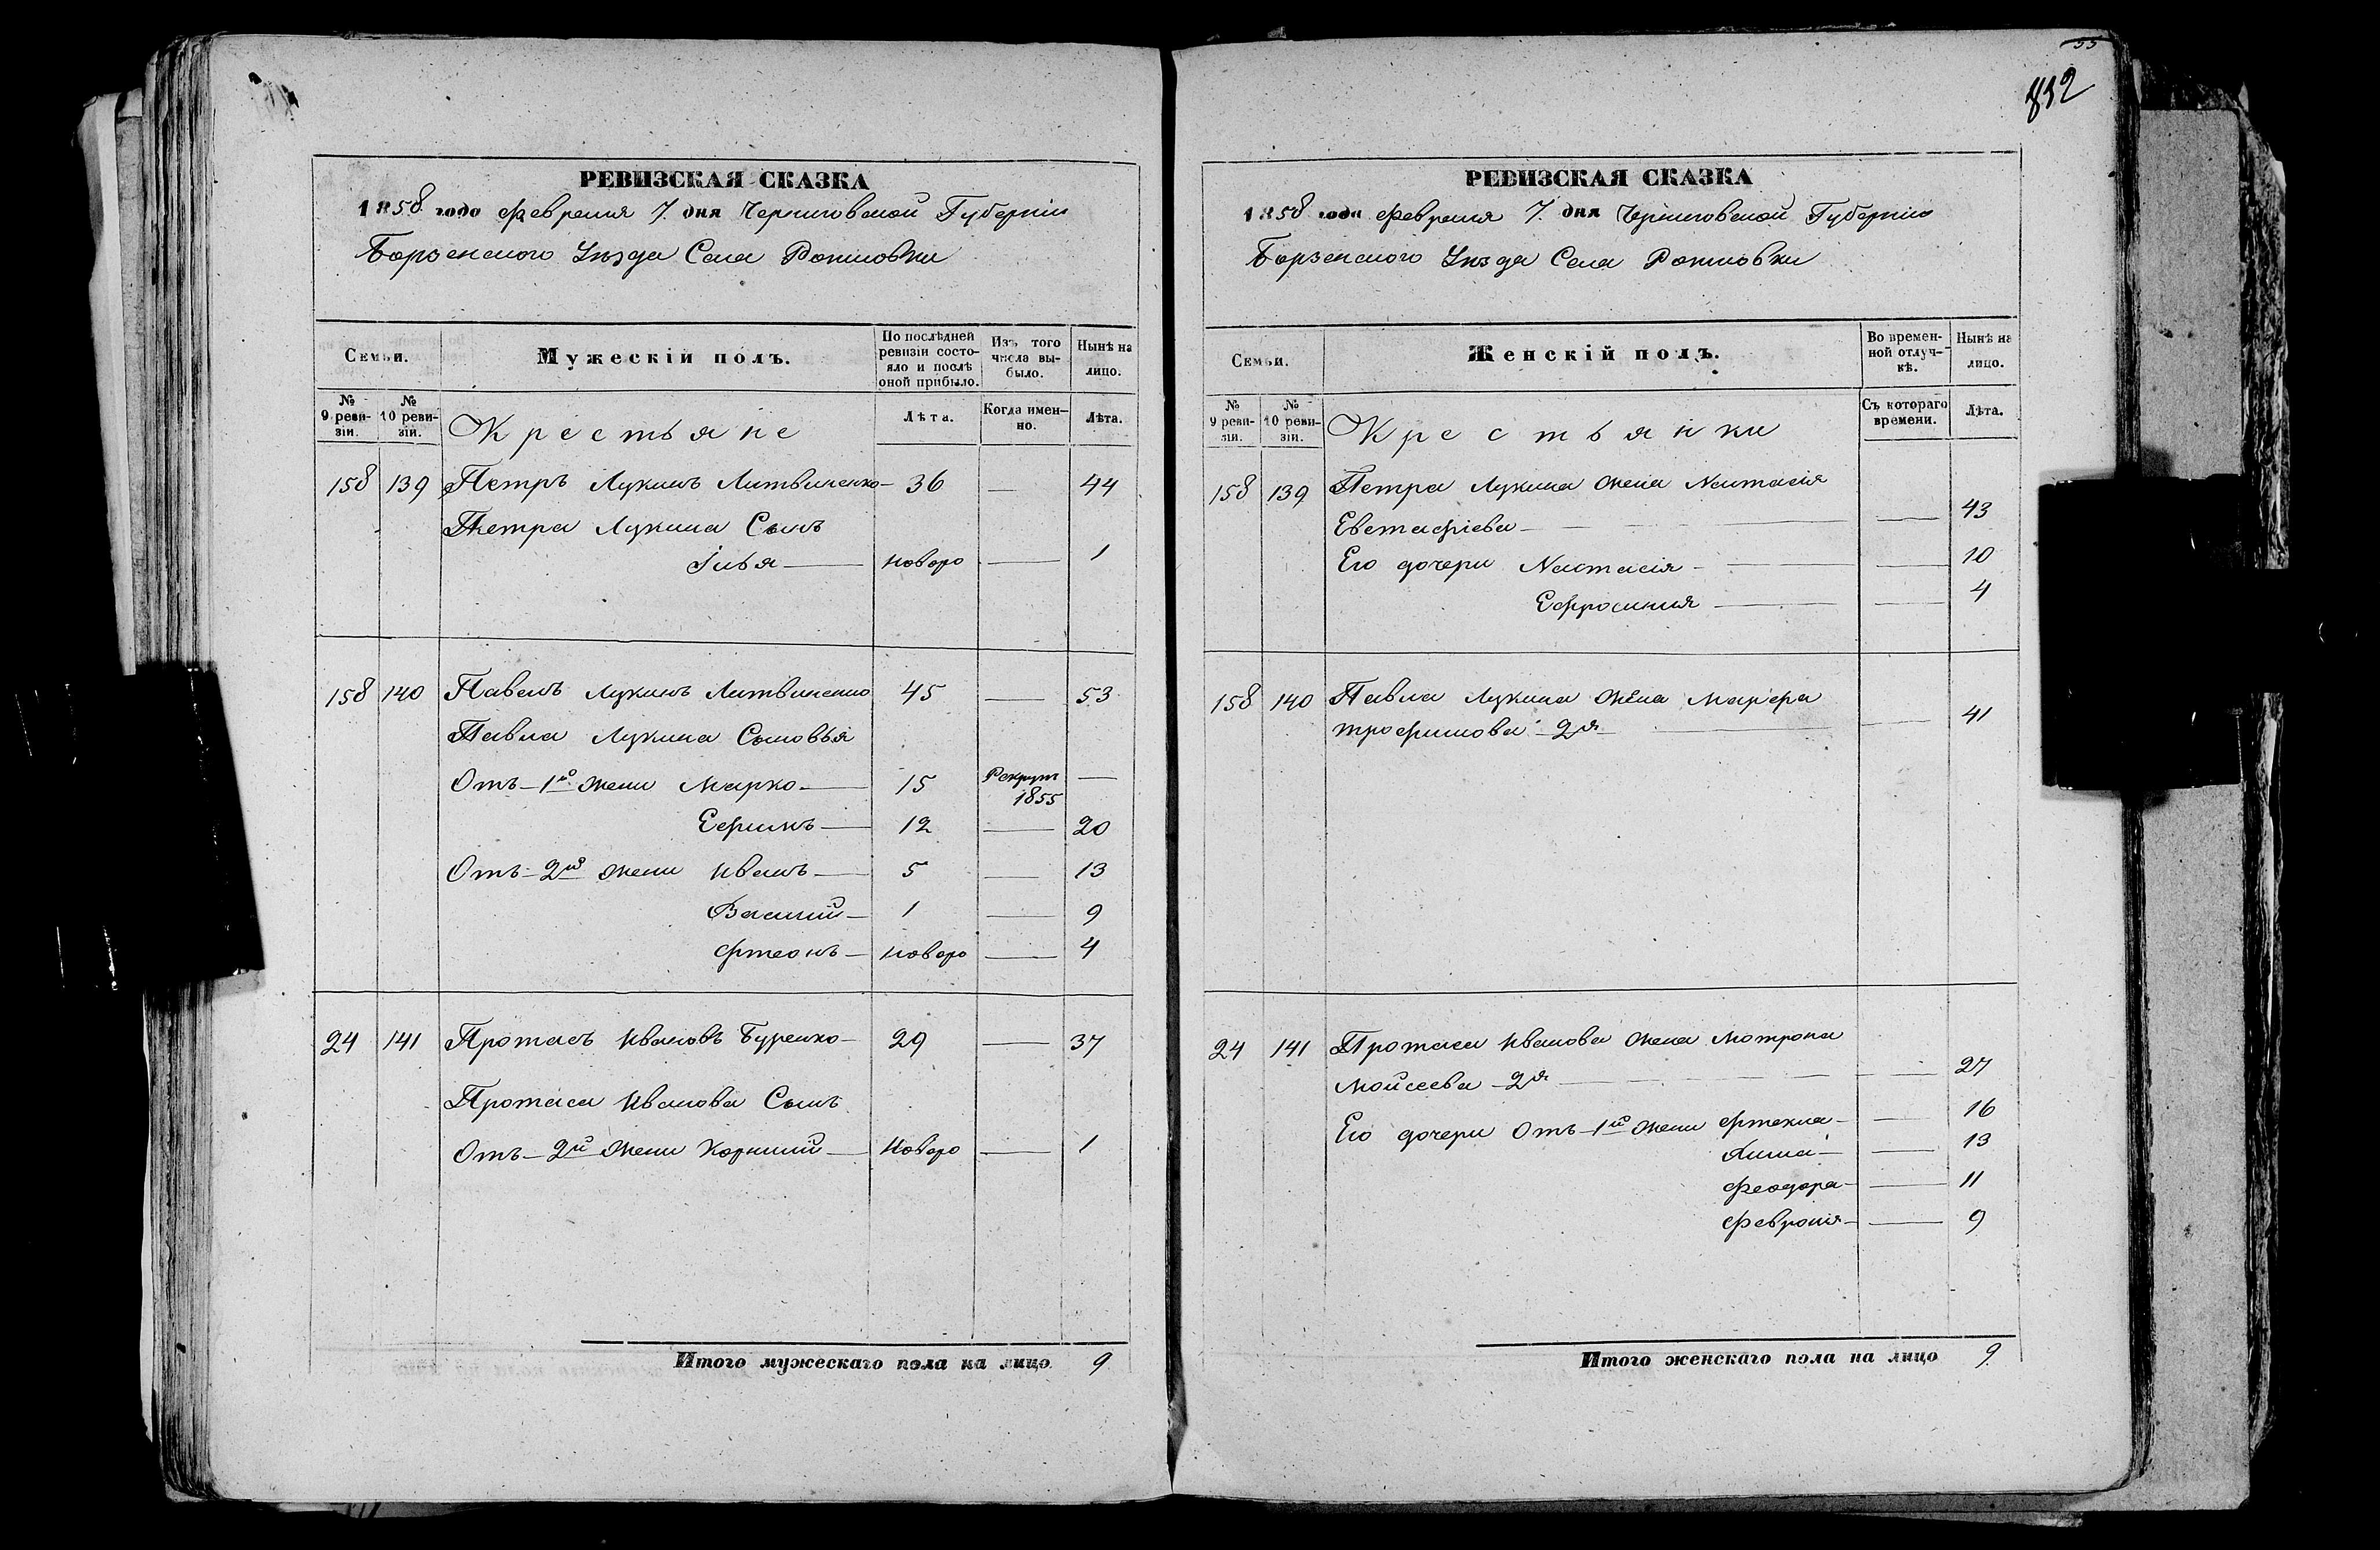 РЕВИЗСКАЯ СКАЗКА
1858 года февраля 7. дня Черниговской Губерніи
Борзенского Уѣзда Села
Семьи.
Мужескій полъ.
По послѣдней ревизіи состояло и послѣ оной прибыло.
Изъ того числа выбыло.
Нынѣ на лицо.
№ 9 ревизіи.
№ 10 ревизіи.
Крестьяне
Лѣта.
Когда именно.
Лѣта.
158 139 Петръ Лукинъ Литвиненко 36 — 44
Петра Лукина Сынъ
Илья — новоро — 1
158 140 Павелъ Лукинъ Литвиненко 45 — 53
Павла Лукина Сыновья
Отъ 1й жены Марко — 15 Рекрут 1855 —
Ефимъ — 12 — 20
Отъ 2й жены Иванъ — 5 — 13
Василий — 1 — 9
— новоро — 4
24 141 Протасъ Ивановъ Буренко — 29 — 37
Протаса Иванова Сынъ
Отъ 2й жены Корнилий — Новоро — 1
Итого мужескаго пола на лицо 9
55
812
РЕВИЗСКАЯ СКАЗКА
1858 года февраля 7. дня Черниговской Губерніи
Борзенского Уѣзда Села
Семьи.
Женскій полъ.
Во временной отлучкѣ.
Нынѣ на лицо.
№ 9 ревизіи.
№ 10 ревизіи.
Крестьянки
Съ котораго времени.
Лѣта.
158 139 Петра Лукина жена Настасія
Евстафіева — — 43
Его дочери Настасія — — 10
Ефросиния — — 4
158 140 Павла Лукина жена Марфа
трофимова 2я — 41
24 141 Протаса Иванова жена Мотрона
Мойсеева 2я — — 27
Его дочери Отъ 1й жены — 16
— 13
феодора — — 11
феврония — — 9
Итого женскаго пола на лицо 9.